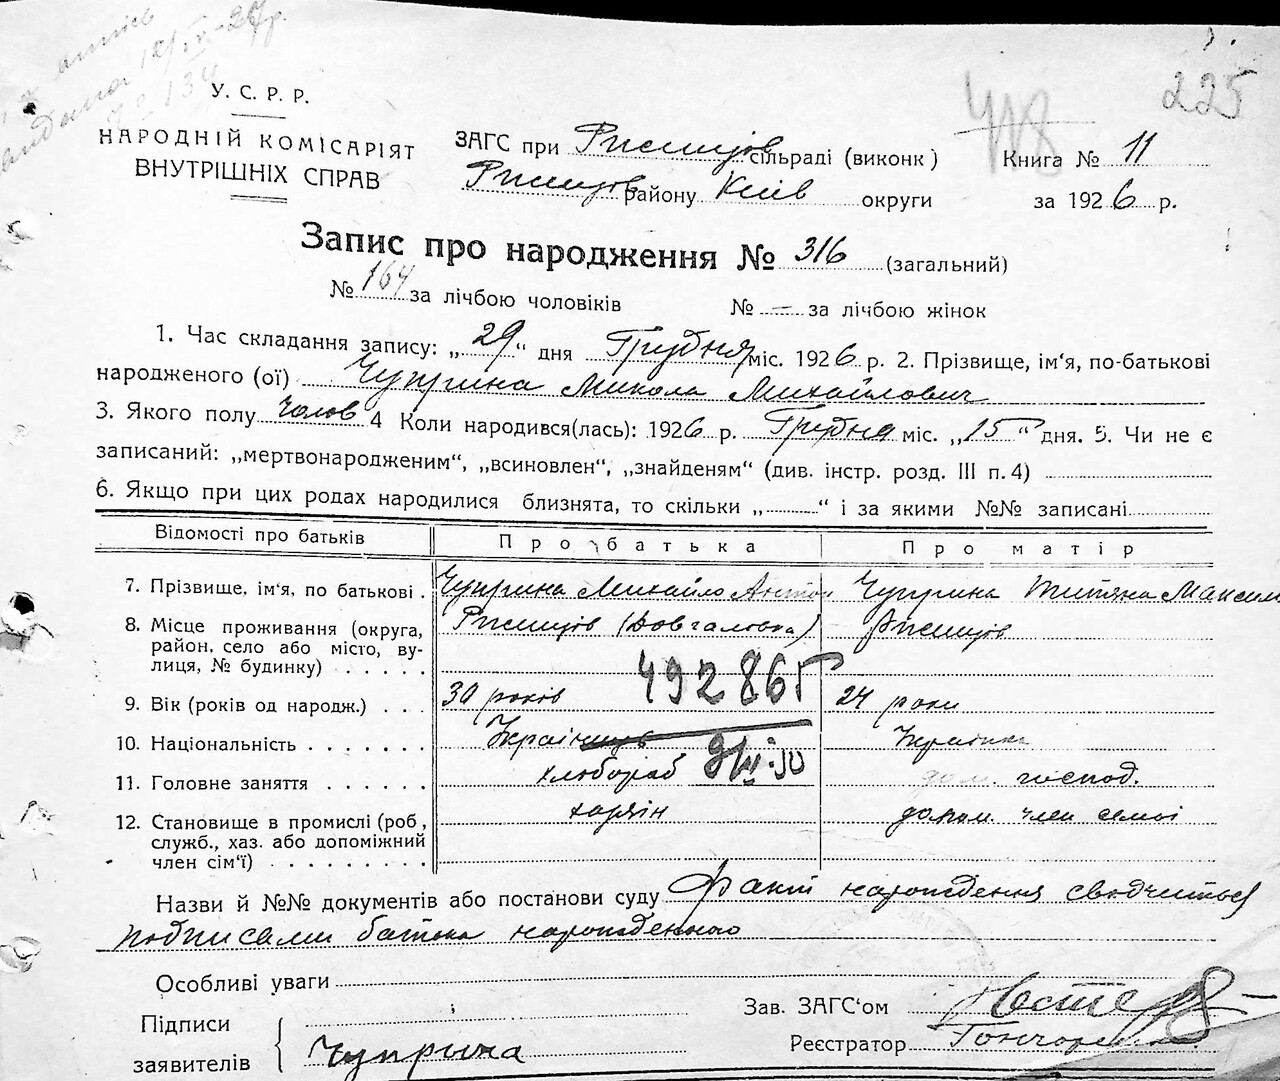 225
418
У. С. Р. Р.
НАРОДНІЙ КОМІСАРІЯТ
ВНУТРІШНІХ СПРАВ
ЗАГС при Ржищів сільраді (виконк)
Ржищів району Київ округи
Книга № 11
за 1926 р.
Запис про народження № 316 (загальний)
№ 164 за лічбою чоловіків № — за лічбою жінок
1. Час складання запису: „29“ дня Грудня міс. 1926 р. 2. Прізвище, ім'я, по-батькові
народженого (ої) Чуприна Микола Михайлович
3. Якого полу чолов 4 Коли народився(лась): 1926 р. Грудня міс. „15“ дня. 5. Чи не є
записаний: „мертвонародженим“, „всиновлен“, „знайденям“ (див. інстр. розд. III п. 4)
6. Якщо при цих родах народилися близнята, то скільки „ “ і за якими №№ записані
Відомості про батьків Про батька Про матір
7. Прізвище, ім'я, по батькові . Чуприна Михайло Антон Чуприна Титяна Максим
8. Місце проживання (округа, район, село або місто, вулиця, № будинку) Ржищів (Довгаловка) Ржищів
492865
9. Вік (років од народж.) . . 30 років 24 роки
10. Національність Українець Українка
11. Головне заняття хлібороб дом. господ.
12. Становище в промислі (роб, служб., хаз. або допоміжний член сім'ї) хазяїн допом член семьї
Назви й №№ документів або постанови суду Факт народження сводчиться
подписами батька народженого
Особливі уваги
Підписи
заявителів Чуприна
Зав. ЗАГС'ом
Реєстратор